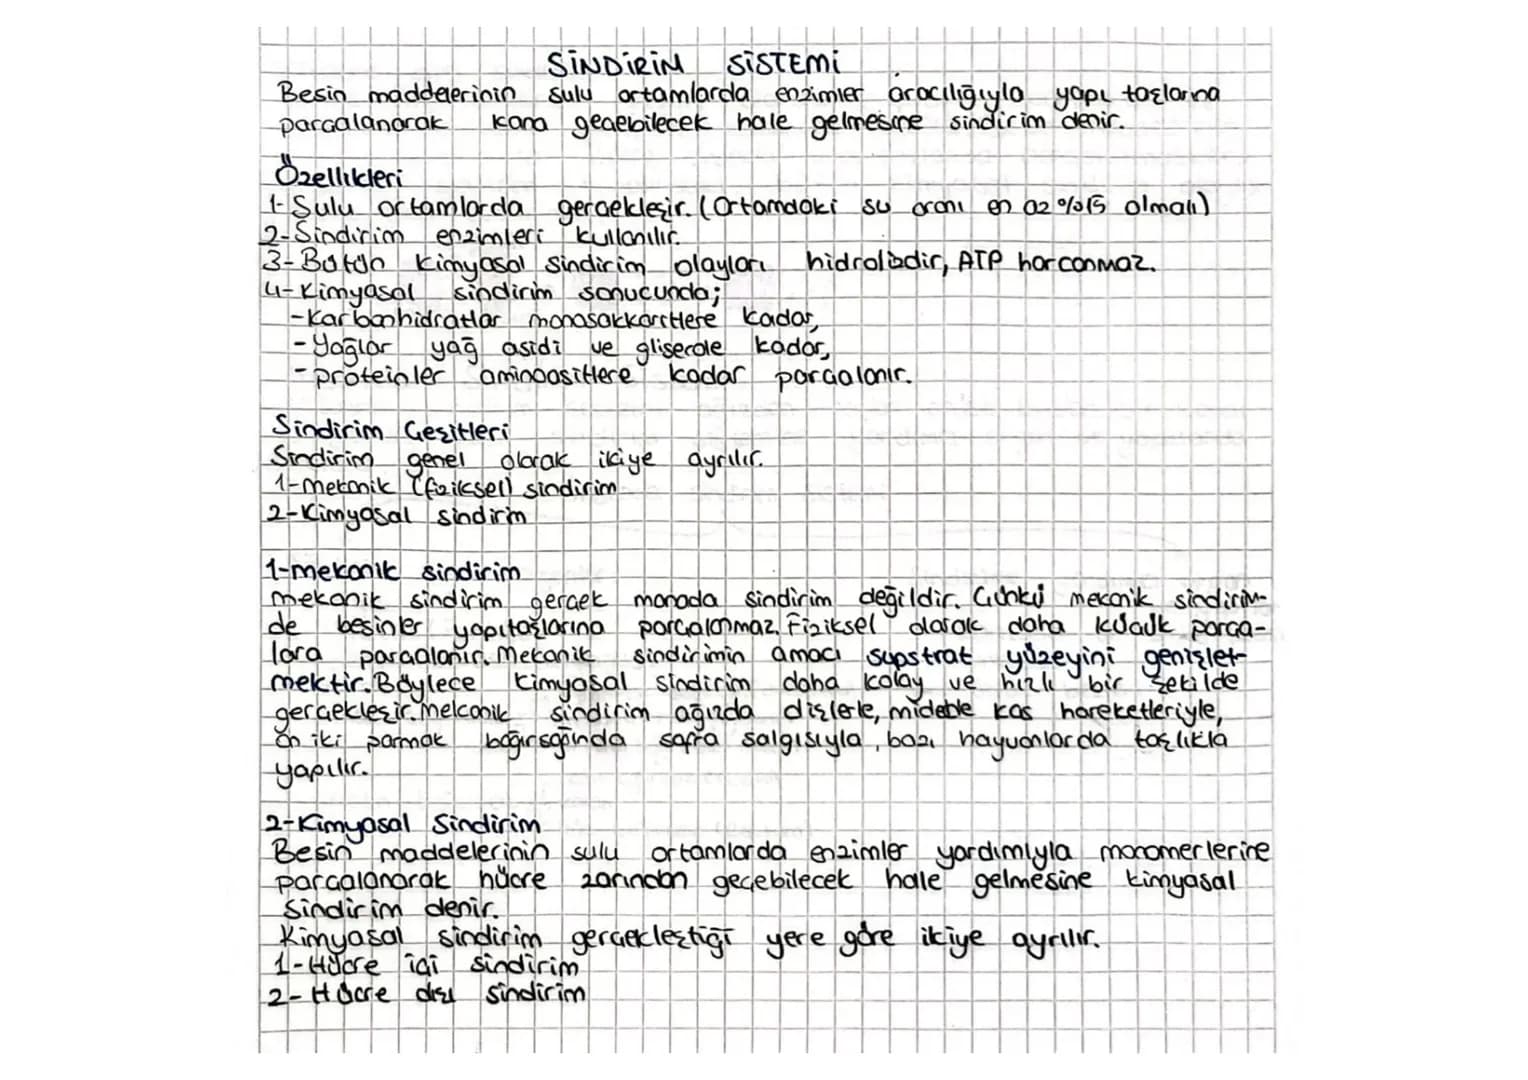 SİNDİRİM SİSTEMİ
Besin maddelerinin sulu ortamlarda enzimler aracılığıyla yapı taşlarına
parçalanarak kana geçebilecek hale gelmesine sindirim denir.
Özellikleri
1-Sulu ortamlarda gerçekleşir. (Ortamdaki su oranı en az %15 olmalı)
2-Sindirim enzimleri kullanılır.
3-Bütün kimyasal sindirim olayları hidrolizdir, ATP harcanmaz.
4-Kimyasal sindirim sonucunda;
-Karbonhidratlar monosakkaritlere kadar,
-Yağlar yağ asidi ve gliserole kadar,
-proteinler aminoasitlere kadar parçalanır.
Sindirim Çeşitleri
Sindirim genel olarak ikiye ayrılır.
1-mekanik (fiziksel) sindirim
2-Kimyasal sindirim
1-mekanik sindirim
mekanik sindirim gerçek manada sindirim değildir. Çünkü mekanik sindirim-
de besinler yapıtaşlarına parçalanmaz. Fiziksel olarak daha küçük parça-
lara parçalanır. Mekanik sindirimin amacı supstrat yüzeyini genişlet-
mektir. Böylece kimyasal sindirim daha kolay ve hızlı bir şekilde
gerçekleşir. Mekanik sindirim ağızda dişlerle, midede kas hareketleriyle,
on iki parmak bağırsağında safra salgısıyla, bazı hayvanlarda taşlıkla
yapılır.
2-Kimyasal Sindirim
Besin maddelerinin sulu ortamlarda enzimler yardımıyla monomerlerine
parçalanarak hücre zarından geçebilecek hale gelmesine kimyasal
sindirim denir.
Kimyasal sindirim gerçekleştiği yere göre ikiye ayrılır.
1-Hücre içi sindirim
2-Hücre dışı sindirim